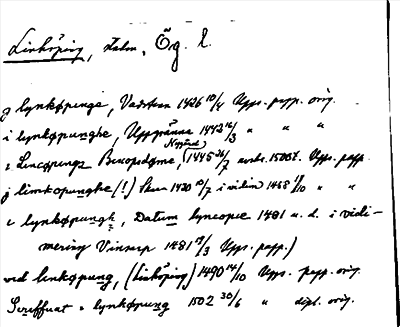 Linköping, Lkdm, Ög. l.
j lynkøpunge, Vadstena 1426 10/4 Upps. papp. orig.
i lynkøpunghe, Uppgränna 1442 16/3 " " "
Lincøpunge Biscopsdøme, 1445 26/7 avskr. 1500 t. Upps. papp.
j limkopunghe (!) Skara 1420 10/7 i vidim 1458 " "
i lynkøpungh, Datum lyncopie 1481 u. d. i vidi-
mering 1481 19/3 Upps. papp.)
ved linkøpung, (Linköping) 1490 14/10 Upps. papp. orig.
Scriffuat i lynkøpung 1502 30/6 " dipl. orig.